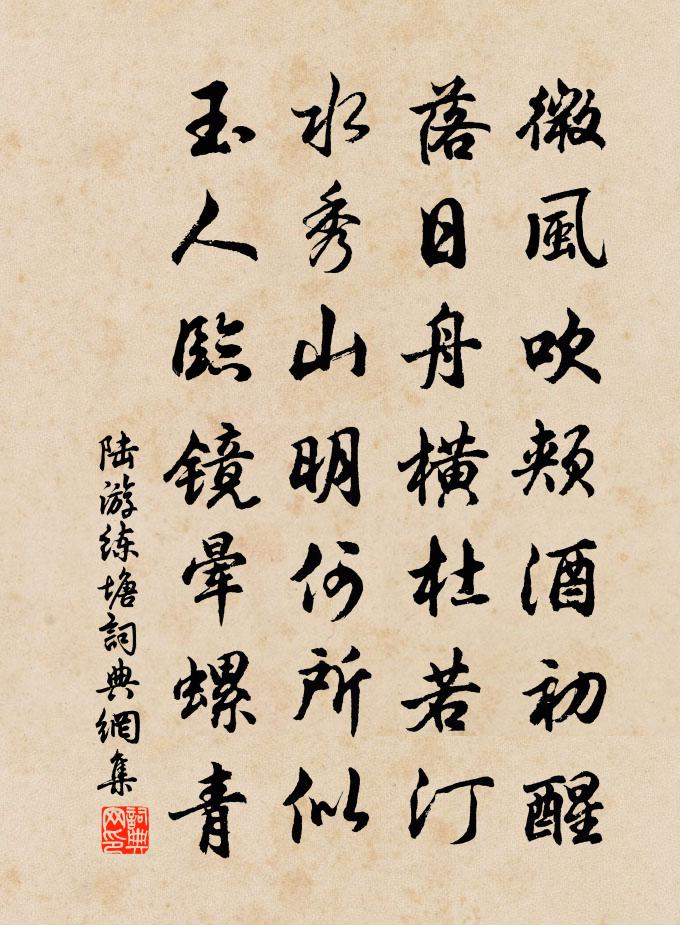 微風吹頰酒初醒
落日舟橫杜若汀
水秀山明何所似
玉人臨鏡暈螺青
陆游练塘詞典網集
詞典网印